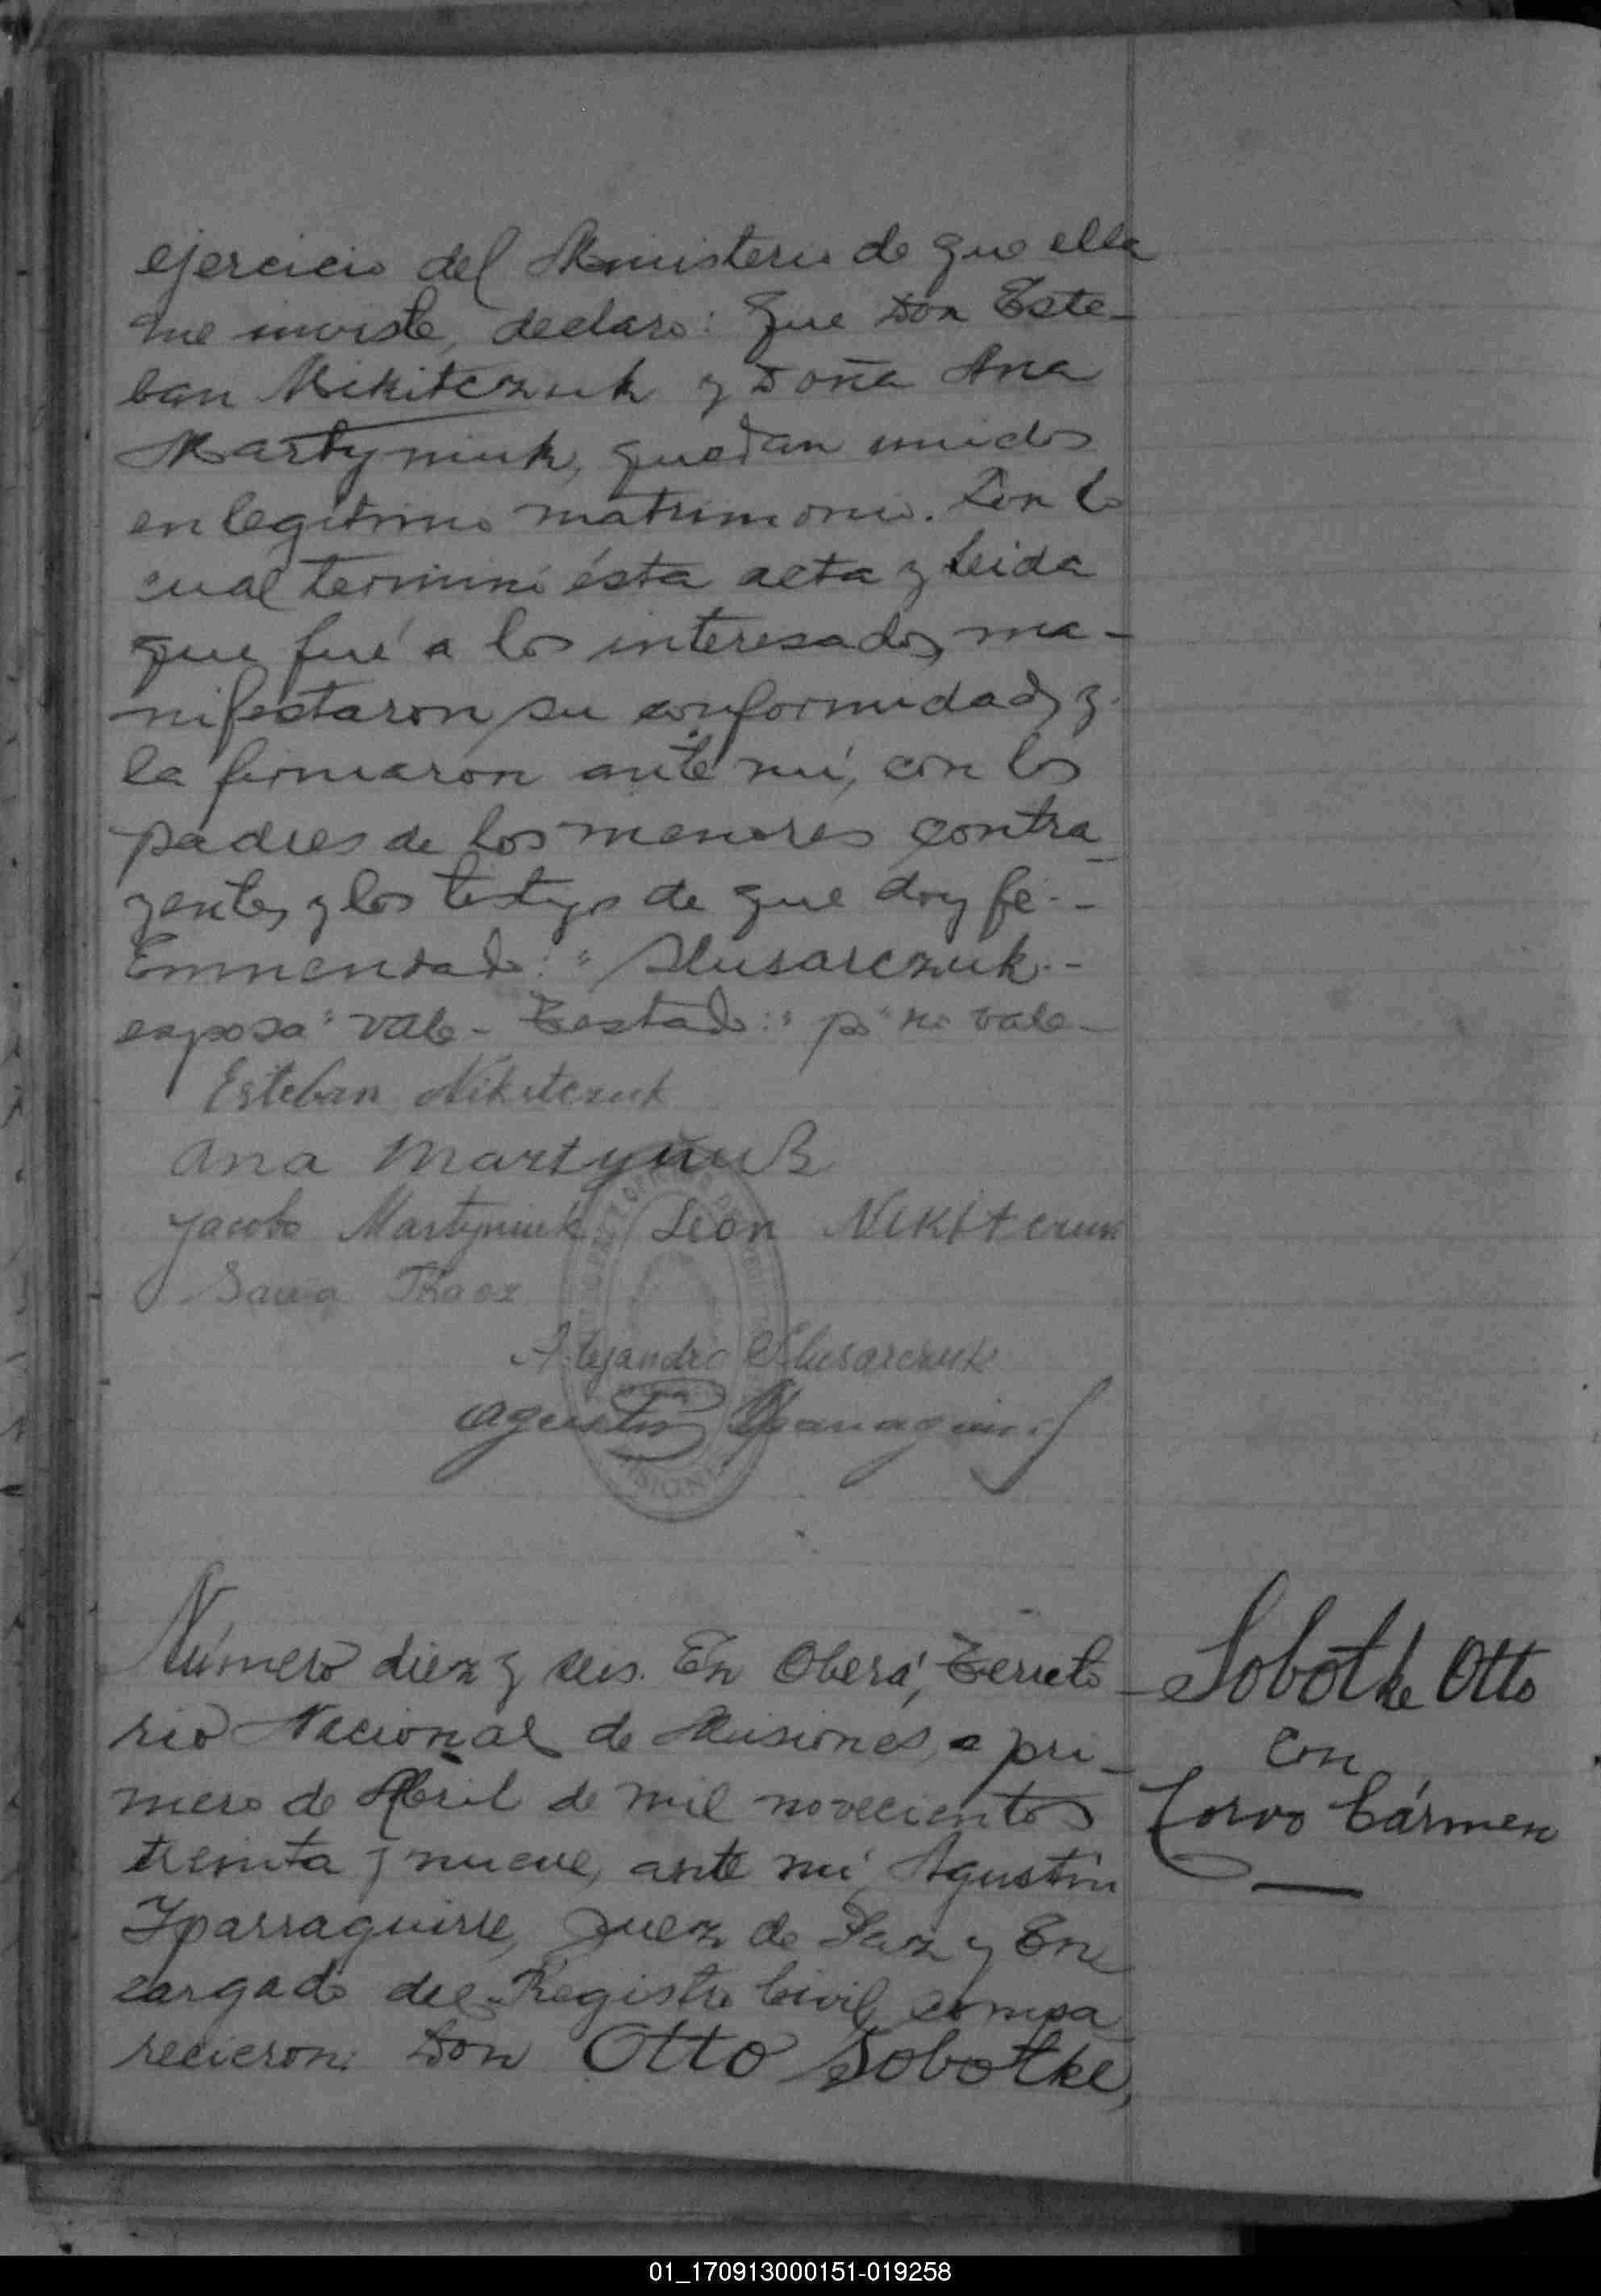 ejercicio del Ministerio de que ella
me inviste, declaro: Que Don Este-
ban Nikitczuk y Doña Ana
Martyniuk, quedan unidos
en legitimo matrimonio. Con lo
cual terminó ésta acta y leida
que fué a los interesados, ma-
nifestaron su conformidad, y
la firmaron ante mi, con los
padres de los menores contra_
yentes y los testigos de que doy fe.-
Enmendado: "Slusarczuk.-
esposa" vale - Testado: "p" no vale -
Esteban Nikitczuk
Ana Martyniuk
Jacobo Martyniuk Leon Nikitczuk
Sawa Tkacz
Alejandro Slusarczuk
Agustin Yparraguirre
MISIONES
Número diez y seis. En Oberá, Territo-
rio Nacional de Misiones, a pri-
mero de Abril de mil novecientos
treinta y nueve, ante mi, Agustin
Yparraguirre, Juez de Paz y En
cargado del Registro Civil, compa_
recieron: Don Otto Sobotke,
Sobotke Otto
con
Corvo Cármen
01_170913000151-019258